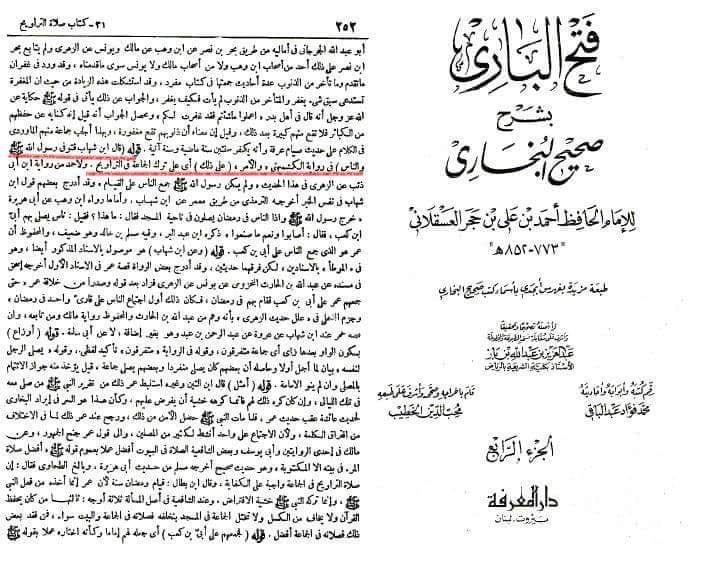 فتح الباري
بشرح
صحيح البخاري
للإمام الحافظ أحمد بن علي بن حجر العسقلاني
"٧٧٣ - ٨٥٢ هـ"
طبعة مزيدة بفهرس أبجدي بأسماء كتب صحيح البخاري
عبد العزيز بن عبد الله بن باز
الأستاذ بكلية الشريعة بالرياض
رقم كتبه وأبوابه وأحاديثه
محمد فؤاد عبد الباقي
محب الدين الخطيب
الجزء الرابع
دار المعرفة
بيروت. لبنان
٢٥٢
٣١ - كتاب صلاة التراويح
أبو عبد الله الجرجاني في أماليه من طريق بحر بن نصر عن ابن وهب عن مالك ويونس عن الزهري ولم يتابع بحر
ابن نصر على ذلك أحد من أصحاب ابن وهب ولا من أصحاب مالك ولا يونس سوى ماقدمناه ، وقد ورد في غفران
ماتقدم وما تأخر من الذنوب عدة أحاديث جمعتها في كتاب مفرد ، وقد استشكلت هذه الزيادة من حيث ان المغفرة
تستدعي سبق شيء يغفر والمتأخر من الذنوب لم يأت فكيف يغفر ، والجواب عن ذلك يأتي في قوله ﷺ حكاية عن
الله عز وجل أنه قال في أهل بدر « اعملوا ماشئتم فقد غفرت لكم » ومحصل الجواب أنه قيل إنه كناية عن حفظهم
من الكبائر فلا تقع منهم كبيرة بعد ذلك ، وقيل إن معناه أن ذنوبهم تقع مغفورة ، وبهذا أجاب جماعة منهم الماوردي
في الكلام على حديث صيام عرفة وأنه يكفر سنتين سنة ماضية وسنة آتية . قوله ( قال ابن شهاب فتوفى رسول الله ﷺ
والناس ) في رواية الكشميهني « والأمر » ( على ذلك ) أي على ترك الجماعة في التراويح . ولأحمد من رواية ابن أبي
ذئب عن الزهري في هذا الحديث « ولم يكن رسول الله ﷺ جمع الناس على القيام » وقد أدرج بعضهم قول ابن
شهاب في نفس الخبر أخرجه الترمذي من طريق معمر عن ابن شهاب ، وأما رواه ابن وهب عن أبي هريرة
« خرج رسول الله ﷺ وإذا الناس في رمضان يصلون في ناحية المسجد فقال : ما هذا ؟ فقيل : ناس يصلي بهم أبي
ابن كعب ، فقال : أصابوا ونعم ما صنعوا » ذكره ابن عبد البر ، وفيه مسلم بن خالد وهو ضعيف ، والمحفوظ أن
عمر هو الذي جمع الناس على أبي بن كعب . قوله ( وعن ابن شهاب ) هو موصول بالاسناد المذكور أيضا ، وهو
في « الموطأ » بالاسنادين ، لكن فرقهما حديثين ، وقد أدرج بعض الرواة قصة عمر في الاسناد الأول أخرجه إسحق
في مسنده عن عبد الله بن الحارث المخزومي عن يونس عن الزهري فزاد بعد قوله وصدرا من خلافة عمر « حتى
جمعهم عمر على أبي بن كعب فقام بهم في رمضان ، فكان ذلك أول اجتماع الناس على قارئ واحد في رمضان »
وجزم الذهلي في « علل حديث الزهري » بأنه وهم من عبد الله بن الحارث والمحفوظ رواية مالك ومن تابعه ، وان
قصة عمر عند ابن شهاب عن عروة عن عبد الرحمن بن عبد وهو بغير إضافة ، لا عن أبي سلمة . قوله ( أوزاع )
بسكون الواو بعدها زاي أي جماعة متفرقون ، وقوله في الرواية « متفرقون » تأكيد لفظي . وقوله « يصلي الرجل
لنفسه » بيان لما أجمل أولا وحاصله أن بعضهم كان يصلي منفردا وبعضهم يصلي جماعة ، قيل يؤخذ منه جواز الائتمام
بالمصلي وان لم ينو الامامة . قوله ( أمثل ) قال ابن التين وغيره استنبط عمر ذلك من تقرير النبي ﷺ من صلى معه
في تلك الليالي ، وإن كان كره ذلك لهم فانما كرهه خشية أن يفرض عليهم ، وكأن هذا هو السر في إيراد البخاري
لحديث عائشة عقب حديث عمر ، فلما مات النبي ﷺ حصل الأمن من ذلك ، ورجح عند عمر ذلك لما في الاختلاف
من افتراق الكلمة ، ولأن الاجتماع على واحد أنشط لكثير من المصلين ، وإلى قول عمر جنح الجمهور ، وعن
مالك في إحدى الروايتين وأبي يوسف وبعض الشافعية الصلاة في البيوت أفضل عملا بعموم قوله ﷺ « أفضل صلاة
المرء في بيته الا المكتوبة » وهو حديث صحيح أخرجه مسلم من حديث أبي هريرة ، وبالغ الطحاوي فقال : إن
صلاة التراويح في الجماعة واجبة على الكفاية ، وقال ابن بطال : قيام رمضان سنة لأن عمر إنما أخذه من فعل النبي
ﷺ ، وإنما تركه النبي ﷺ خشية الافتراض . وعند الشافعية في أصل المسألة ثلاثة أوجه : ثالثها من كان يحفظ
القرآن ولا يخاف من الكسل ولا تختل الجماعة في المسجد بتخلفه فصلاته في الجماعة والبيت سواء ، فمن فقد بعض
ذلك فصلاته في الجماعة أفضل . قوله ( فجمعهم على أبي بن كعب ) أي جعله لهم إماما وكأنه اختاره عملا بقوله ﷺ